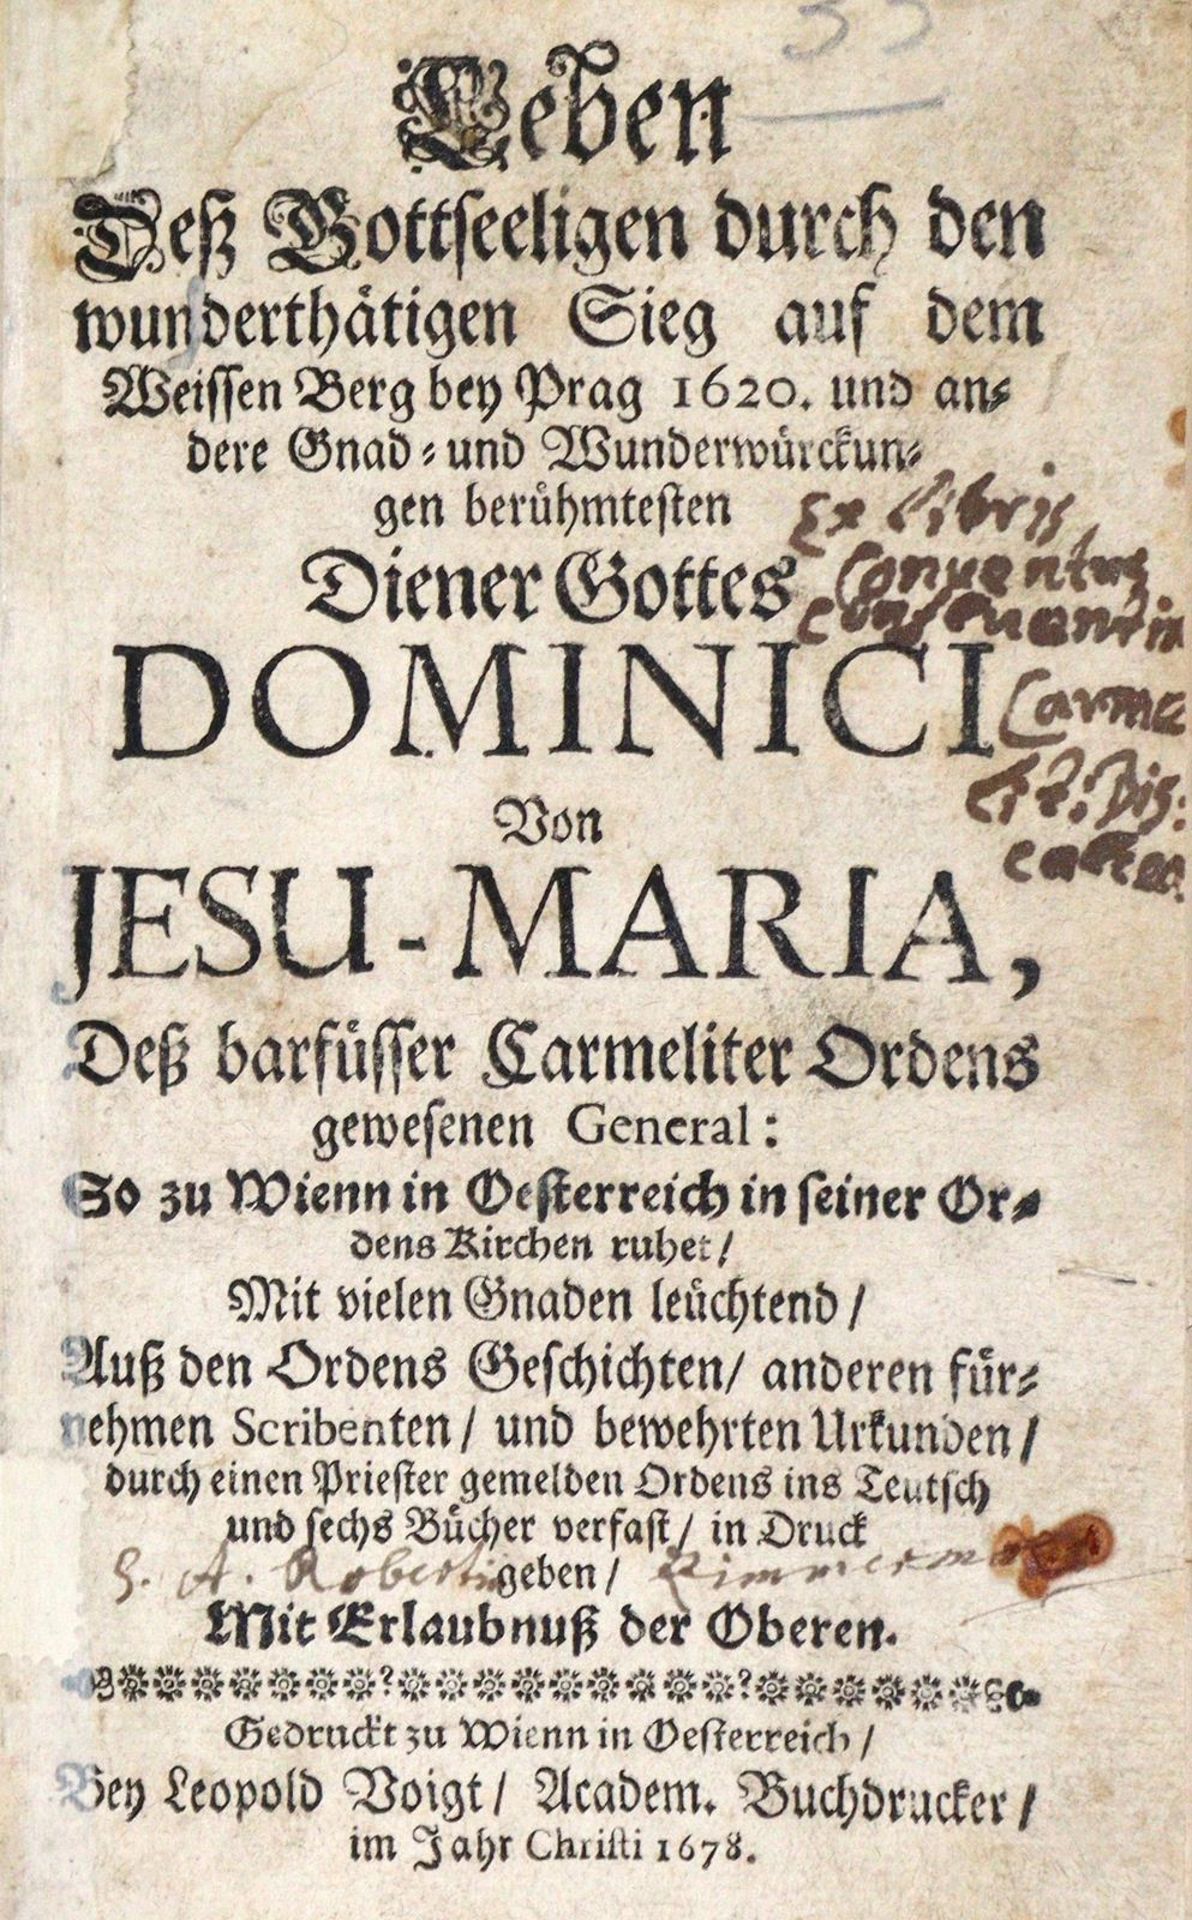 Leben
Deß Gottseeligen durch den
wunderthätigen Sieg auf dem
Weissen Berg bey Prag 1620. und an-
dere Gnad- und Wunderwürckun-
gen berühmtesten
Ex libris
Conventus
Diener Gottes
DOMINICI
Carme
lit: Dis:
Von
JESU-MARIA,
Deß barfüsser Carmeliter Ordens
gewesenen General:
So zu Wienn in Oesterreich in seiner Or-
dens Kirchen ruhet/
Mit vielen Gnaden leüchtend/
Auß den Ordens Geschichten/ anderen für-
nehmen Scribenten/ und bewehrten Urkunden/
durch einen Priester gemelden Ordens ins Teutsch
und sechs Bücher verfast/ in Druck
geben/
Mit Erlaubnuß der Oberen.
Gedruckt zu Wienn in Oesterreich/
Bey Leopold Voigt/ Academ. Buchdrucker/
im Jahr Christi 1678.